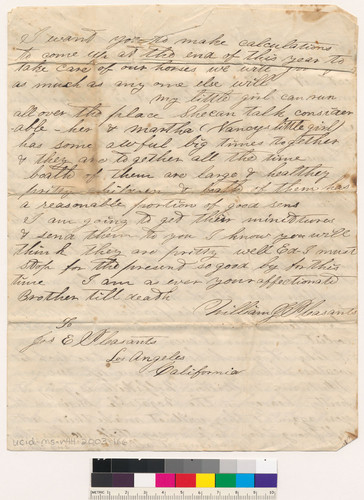 I want you to make calculations
to come up at the end of this year to
take care of our horses we will
as much as any one else will
my little girl can run
all over the place She can talk consider
able - her & martha (Nancys little girl)
has some awful big times together
& they are together all the time
boath of them are large & healthey
pritty children & boath of them has
a reasonable portion of good sens
I am going to get their minetures
& send them to you I know you will
think they are pritty well Ed I must
Stop for the present so good by for this
time I am as ever your affectionate
Brother till death
William J Pleasants
To
Jos E Pleasants
Los Angeles
California
METRIC 1 2 3 4 5 6 7 8 9 10